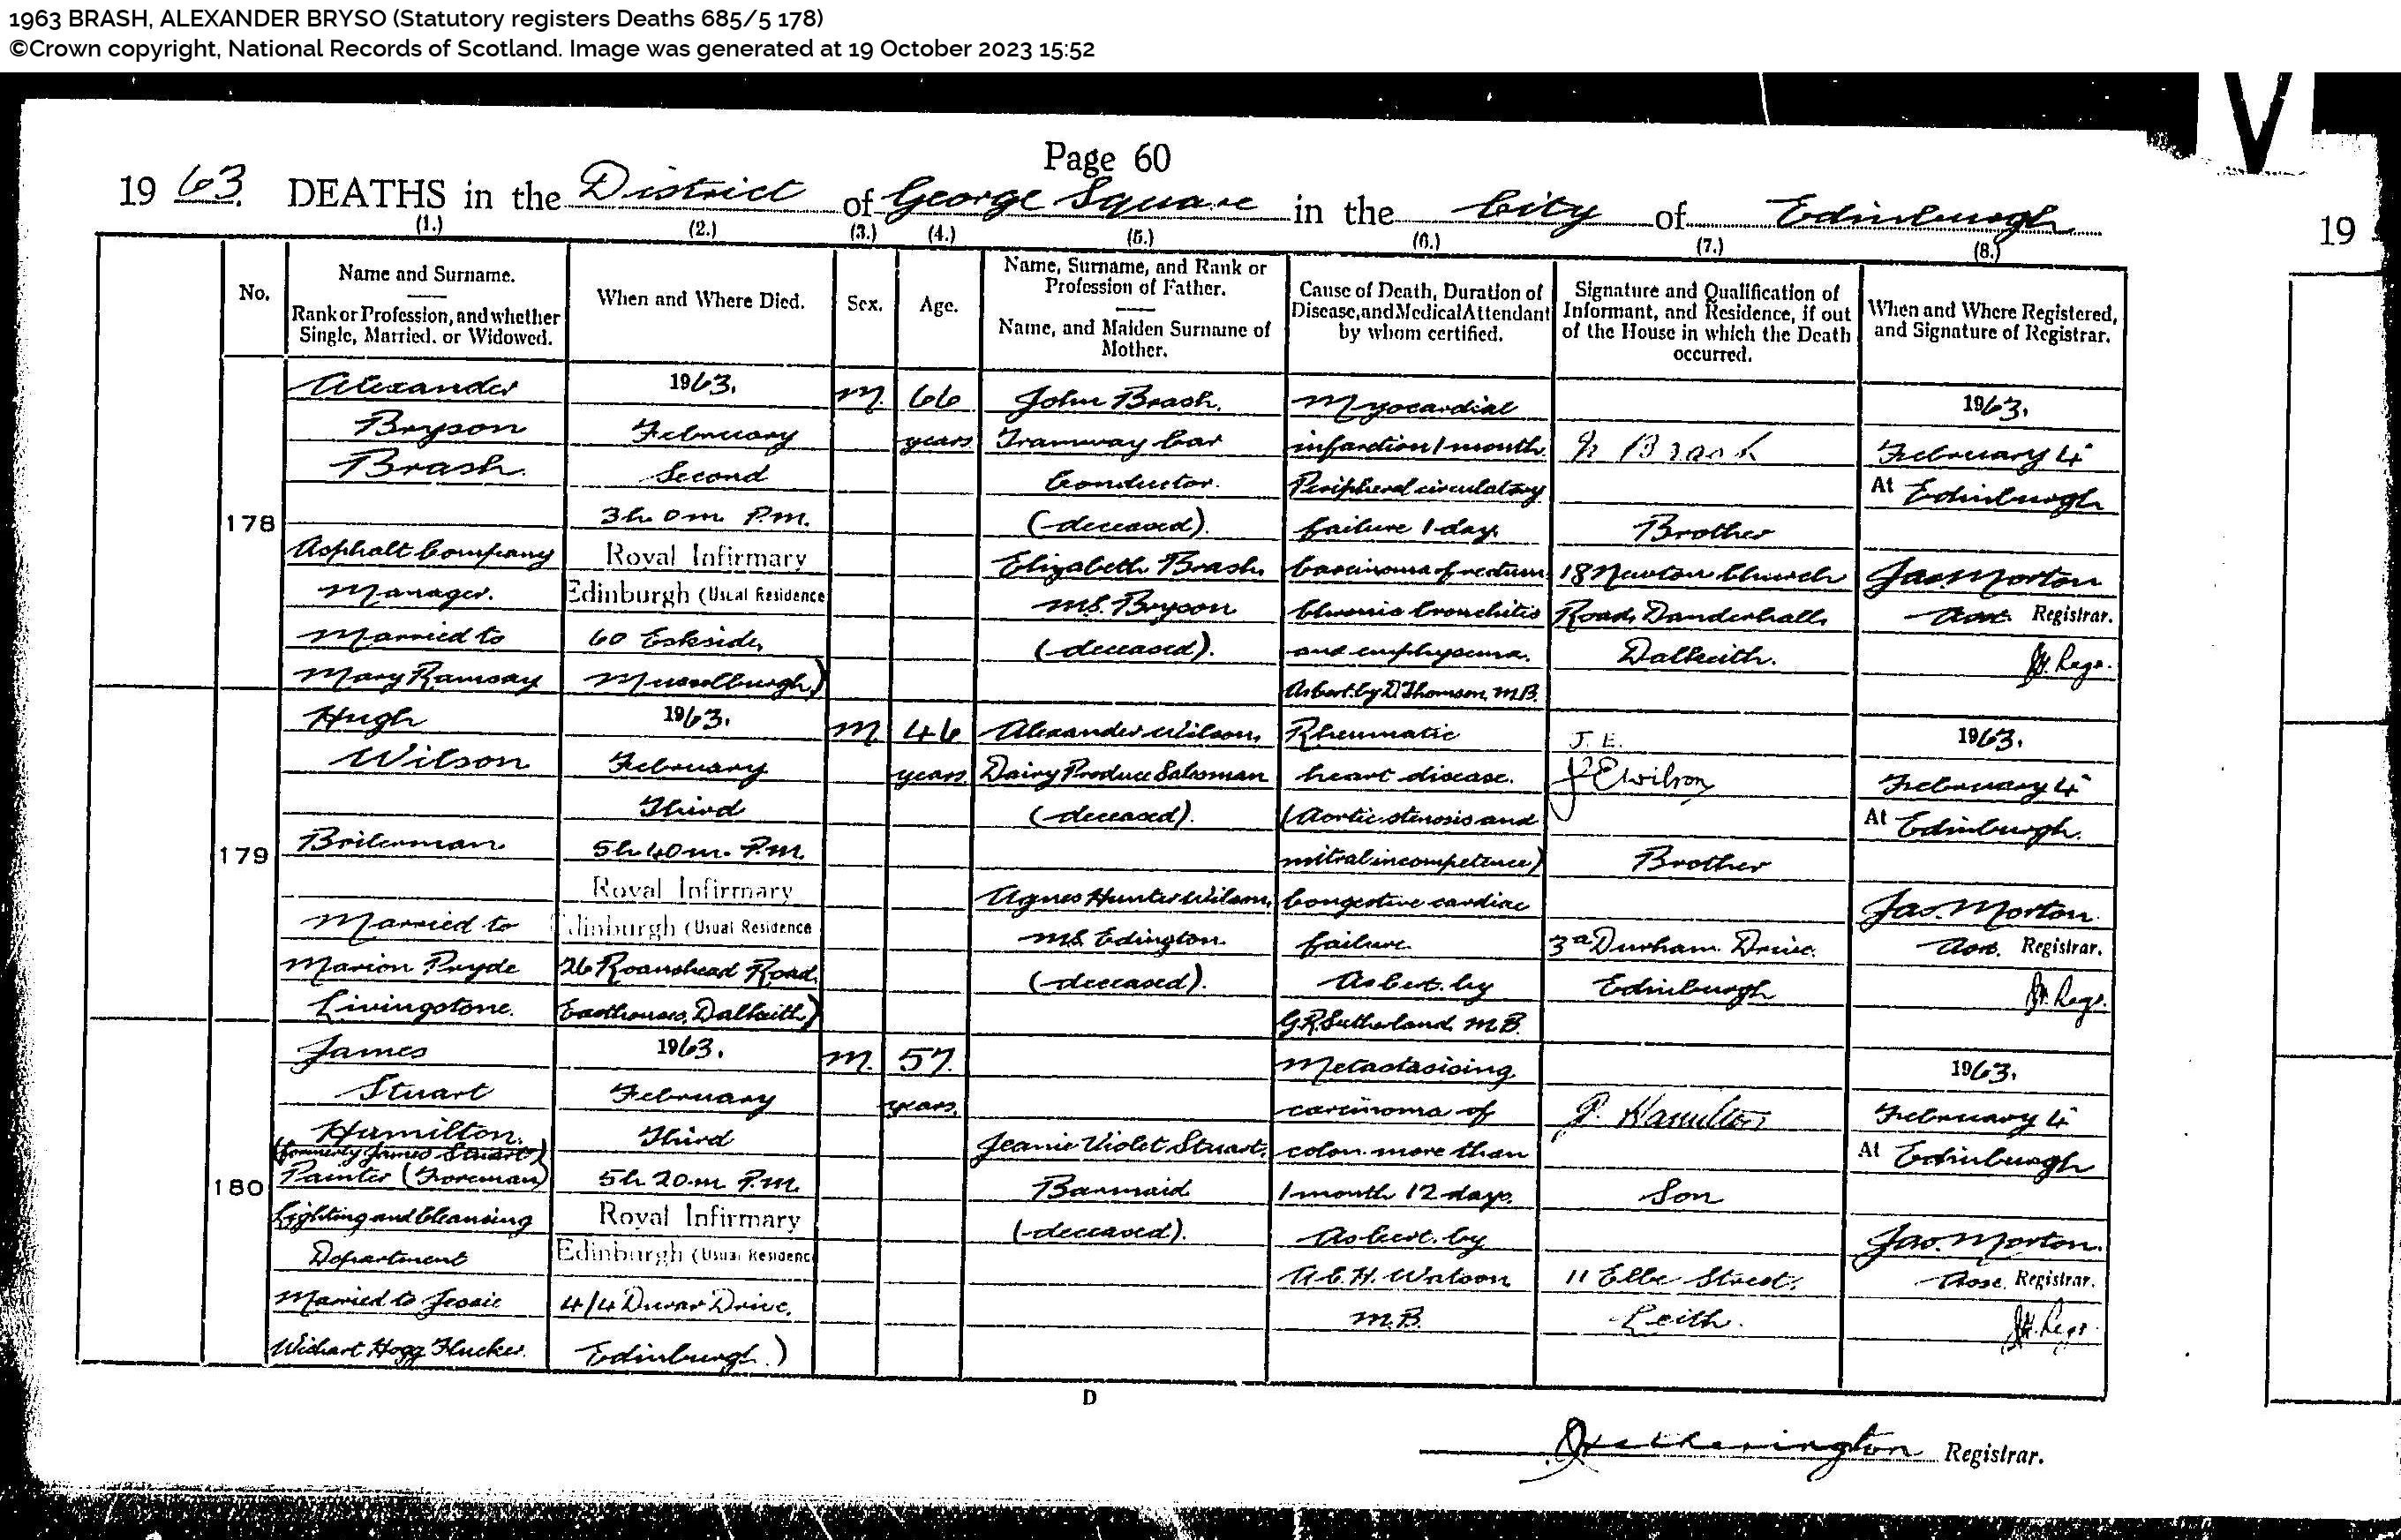 1963 BRASH, ALEXANDER BRYSO (Statutory registers Deaths 685/5 178)
©Crown copyright, National Records of Scotland. Image was generated at 19 October 2023 15:52
V
Page 60
1963. DEATHS in the District of George Square in the City of Edinburgh
19
(1.) (2.) (3.) (4.) (5.) (6.) (7.) (8.)
No.
Name and Surname.
Rank or Profession, and whether
Single, Married. or Widowed.
When and Where Died.
Sex.
Age.
Name, Surname, and Rank or
Profession of Father.
Name, and Maiden Surname of
Mother.
Cause of Death, Duration of
Disease, and Medical Attendant
by whom certified.
Signature and Qualification of
Informant, and Residence, if out
of the House in which the Death
occurred.
When and Where Registered,
and Signature of Registrar.
178
Alexander
Bryson
Brash.
Asphalt Company
Manager.
Married to
Mary Ramsay
1963.
February
Second
3h. 0m. P.m.
Royal Infirmary
Edinburgh (Usual Residence
60 Eskside,
Musselburgh)
M.
66
years
John Brash.
Tramway Car
Conductor.
(deceased).
Elizabeth Brash.
M.S. Bryson
(deceased).
Myocardial
infarction 1 month
Peripheral circulatory
failure 1 day.
Carcinoma of rectum
Chronic bronchitis
and emphysema.
As cert. by D. Thomson, M.B.
Brash
Brother
18 Newton Church
Road, Danderhall,
Dalkeith.
1963.
February 4
At Edinburgh
Jas. Morton
Asst. Registrar.
Regr.
179
Hugh
Wilson
Boilerman
Married to
Marion Pryde
Livingstone.
1963.
February
Third
5h. 40m. P.m.
Royal Infirmary
Edinburgh (Usual Residence
26 Roanshead Road,
Easthouses, Dalkeith)
M.
46
years
Alexander Wilson,
Dairy Produce Salesman
(deceased).
Agnes Hunter Wilson,
M.S. Edington
(deceased).
Rheumatic
heart disease.
(Aortic stenosis and
mitral incompetence)
Congestive cardiac
failure.
As cert. by
G.R. Sutherland, M.B.
J. E.
J E Wilson
Brother
3a Durham Drive.
Edinburgh
1963.
February 4
At Edinburgh.
Jas. Morton
Asst. Registrar.
Regr.
180
James
Stuart
Hamilton.
(formerly James Stuart)
Painter (Foreman)
Lighting and Cleansing
Department
Married to Jessie
Wishart Hogg Flucker.
1963.
February
Third
5h. 20m. P.m.
Royal Infirmary
Edinburgh (Usual Residence
4/4 Durar Drive,
Edinburgh.)
M.
57
years.
Jeanie Violet Stuart,
Barmaid
(deceased).
Metastasising
carcinoma of
colon more than
1 month 12 days.
As cert. by
A.C.H. Watson
M.B.
Hamilton
Son
11 Elbe Street,
Leith.
1963.
February 4
At Edinburgh
Jas. Morton.
Asst. Registrar.
Regr.
D
Registrar.